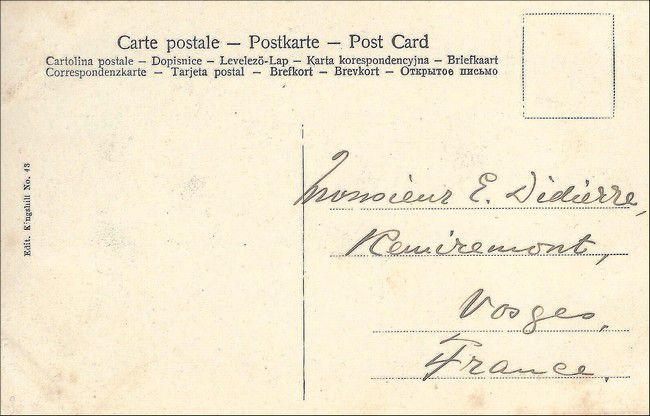 Carte postale – Postkarte – Post Card
Cartolina postale – Dopisnice – Levelező-Lap – Karta korespondencyjna – Briefkaart
Correspondenzkarte – Tarjeta postal – Brefkort – Brevkort – Открытое письмо
Edit. Kingshill No. 43
Monsieur E. Didierre,
Remiremont,
Vosges,
France.